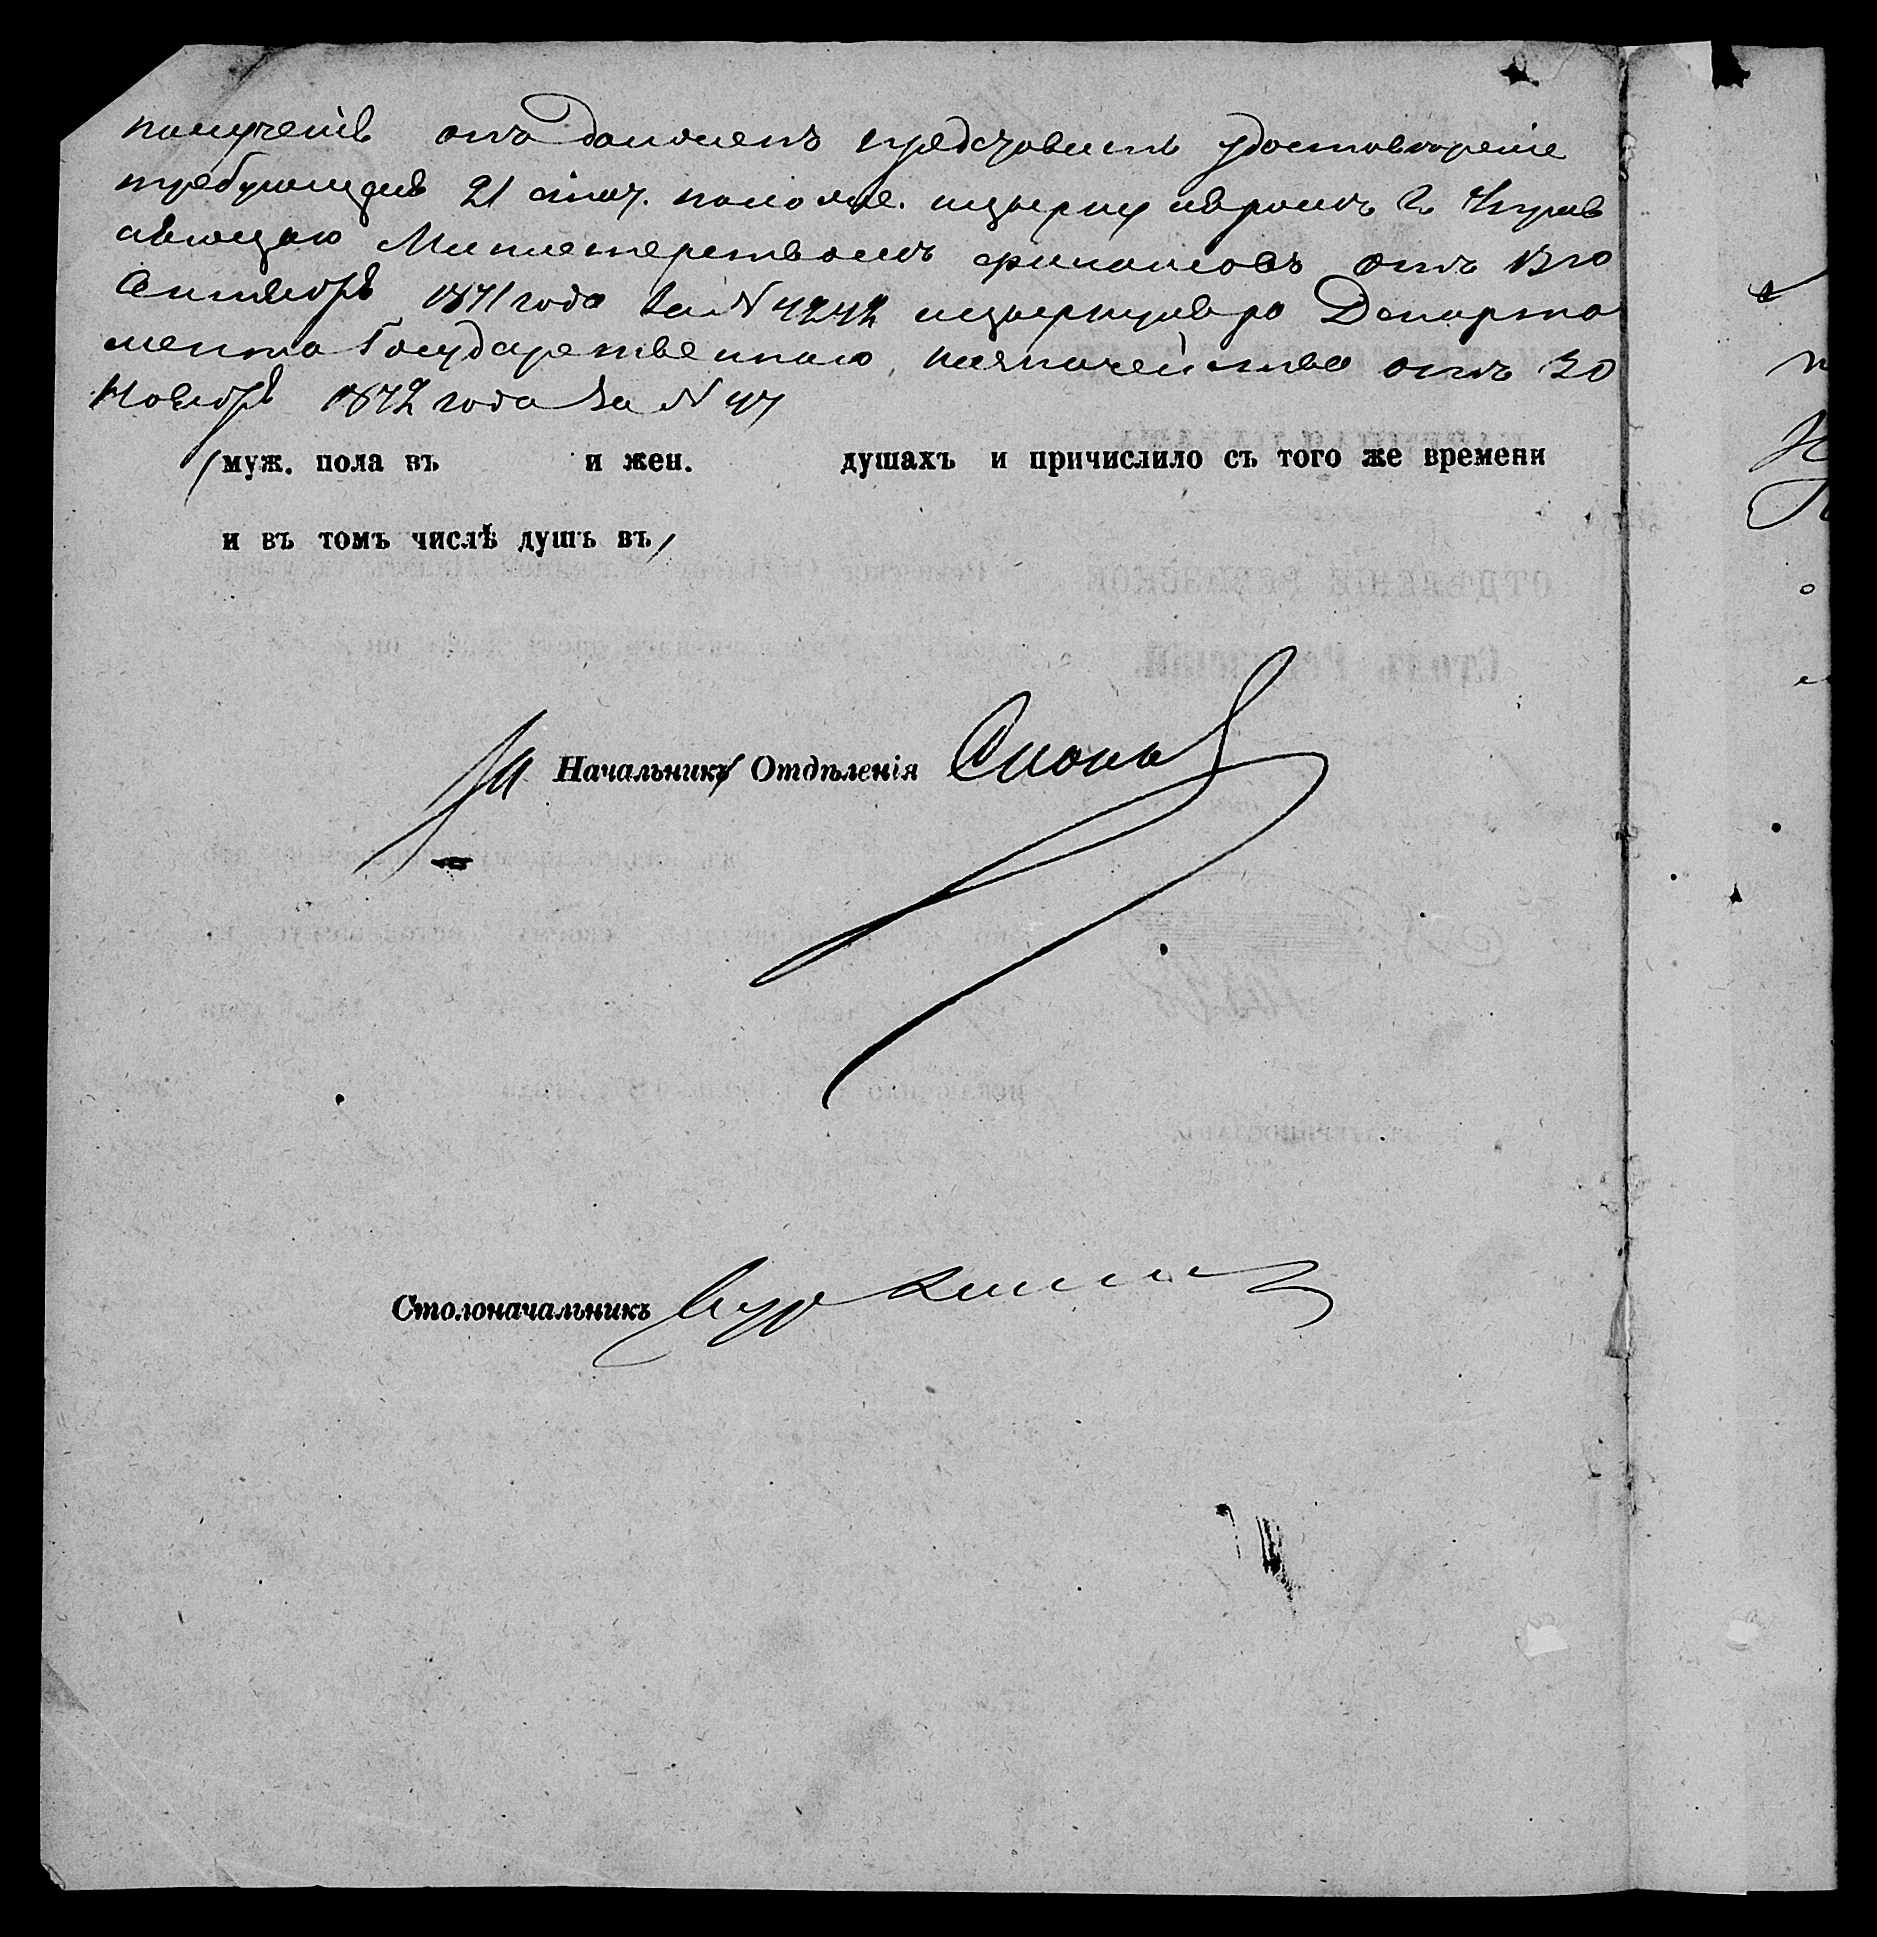 полученія онъ долженъ представить удостовѣреніе
требующіяся 21 стат. полож. и циркуляромъ Г. Управ
ляющаго Министерствомъ финансовъ отъ 13го
Сентября 1871 года за N 4242 и циркуляра Департа
мента Государственнаго казначейства отъ 30
Ноября 1872 года за N 47
(муж. пола въ и жен. душахъ и причислило съ того же времени
и въ томъ числѣ душъ въ)
За Начальникъ Отдѣленія
Столоначальникъ